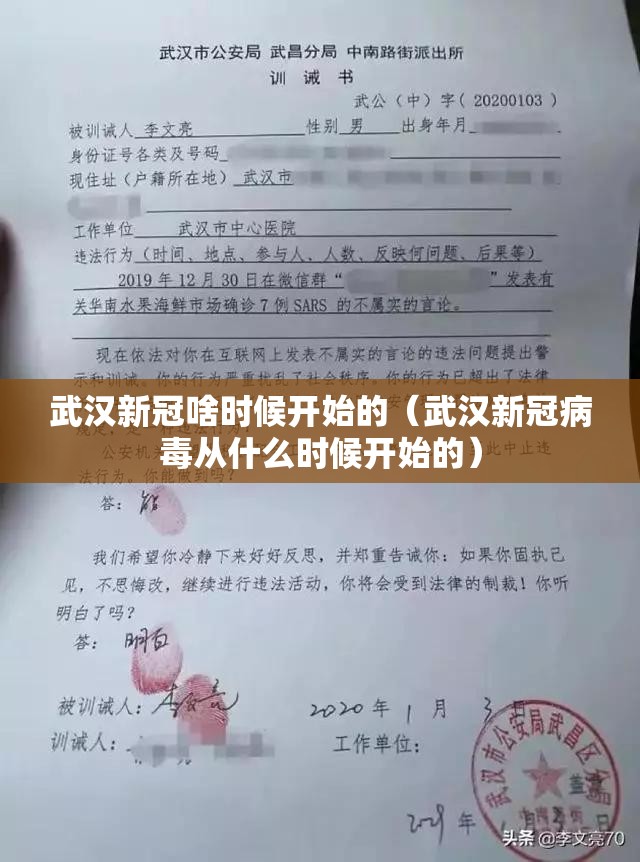 武汉市公安局 武昌分局 中南路街派出所
训 诫 书
武公（中）字（ 20200103 ）
被训诫人 李文亮 性别 男 出身年月
身份证号各类及号码
现住址（户籍所在地） 武汉市
工作单位 武汉市中心医院
违法行为（时间、地点、参与人、人数、反映何问题、后果等）
2019 年 12 月 30 日在微信群“ ”发表有
关华南水果海鲜市场确诊 7 例 SARS 的不属实的言论。
现在依法对你在互联网上发表不属实的言论的违法问题提出警
示和训诫。你的行为严重扰乱了社会秩序。你的行为已超出了法律
武汉新冠啥时候开始的（武汉新冠病
毒从什么时候开始的）
公安机关
法行为。你能做到吗？
答： 能
我们希望你冷静下来好好反思，并郑重告诫你：如果你固执己
见，不思悔改，继续进行违法活动，你将会受到法律的制裁！你听
明白了吗？
答： 明白
被训诫人： 李文亮 2020 年 1 月 3 日
训诫人： 工作单位：
武汉市公安局武昌区分局
头条 @李文亮70